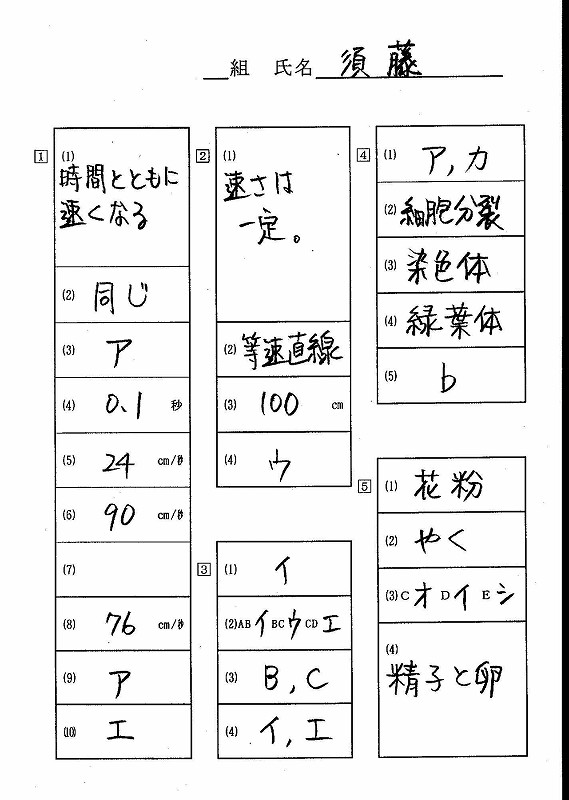 組 氏名 須藤
1
(1)
時間とともに
速くなる
(2) 同じ
(3) ア
(4) 0.1 秒
(5) 24 cm/秒
(6) 90 cm/秒
(7)
(8) 76 cm/秒
(9) ア
(10) エ
2
(1)
速さは
一定。
(2) 等速直線
(3) 100 cm
(4) ウ
3
(1) イ
(2)AB イ BC ウ CD エ
(3) B,C
(4) イ,エ
4
(1) ア,カ
(2) 細胞分裂
(3) 染色体
(4) 緑葉体
(5) b
5
(1) 花粉
(2) やく
(3)C オ D イ E シ
(4)
精子と卵